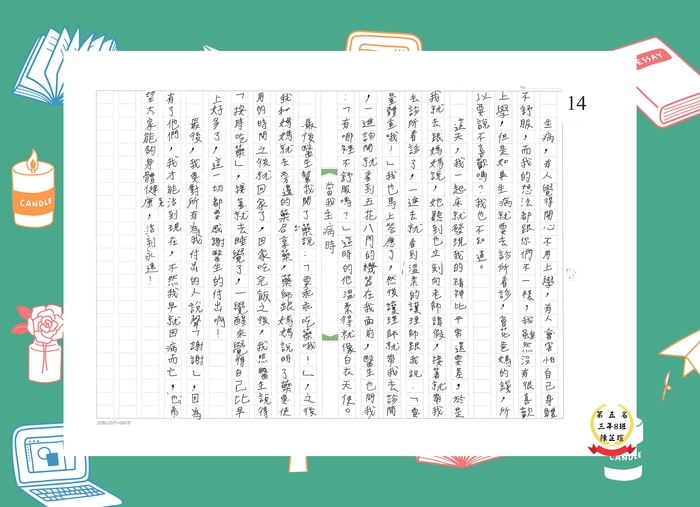 14
生病，有人覺得開心不用上學，有人會害怕自己身體
不舒服，而我的想法都跟你們不一樣，我雖然沒有很喜歡
上學，但是如果生病就要去診所看診，負花爸媽的錢，所
以要說不喜歡嗎？我也不知道。
這天，我一起床就發現我的精神比平常還要差，於是
我就去跟媽媽說，她聽到也立刻向老師請假，接著就帶我
去診所看診了，一進去就看到溫柔的護理師跟我說：「要
量體重哦！」我也馬上答應了，然後護理師就帶我去診間
，一進診間就看到五花八門的機器在我面前，醫生也問我
：「有哪裡不舒服嗎？」這時的他溫柔得就像白衣天使。
當我生病時
最後醫生幫我開了藥說：「要乖乖吃藥哦！」，之後
我和媽媽就去旁邊的藥局拿藥，藥師跟媽媽說明了藥要使
用的時間之後就回家了，回家吃完飯之後，我照醫生說得
「按時吃藥」，接著就去睡覺了，一覺醒來覺得自己比早
上好多了，這一切都要感謝醫生的付出啊！
最後，我要對所有為我付出的人說聲「謝謝」，因為
有了他們，我才能活到現在，不然我早就因病而亡，也希
望大家能夠身體健康，活到永遠！
20格x20行=400字
第五名
三年8班
陳芷瑄
ESSAY
CANDLE
CANDLE